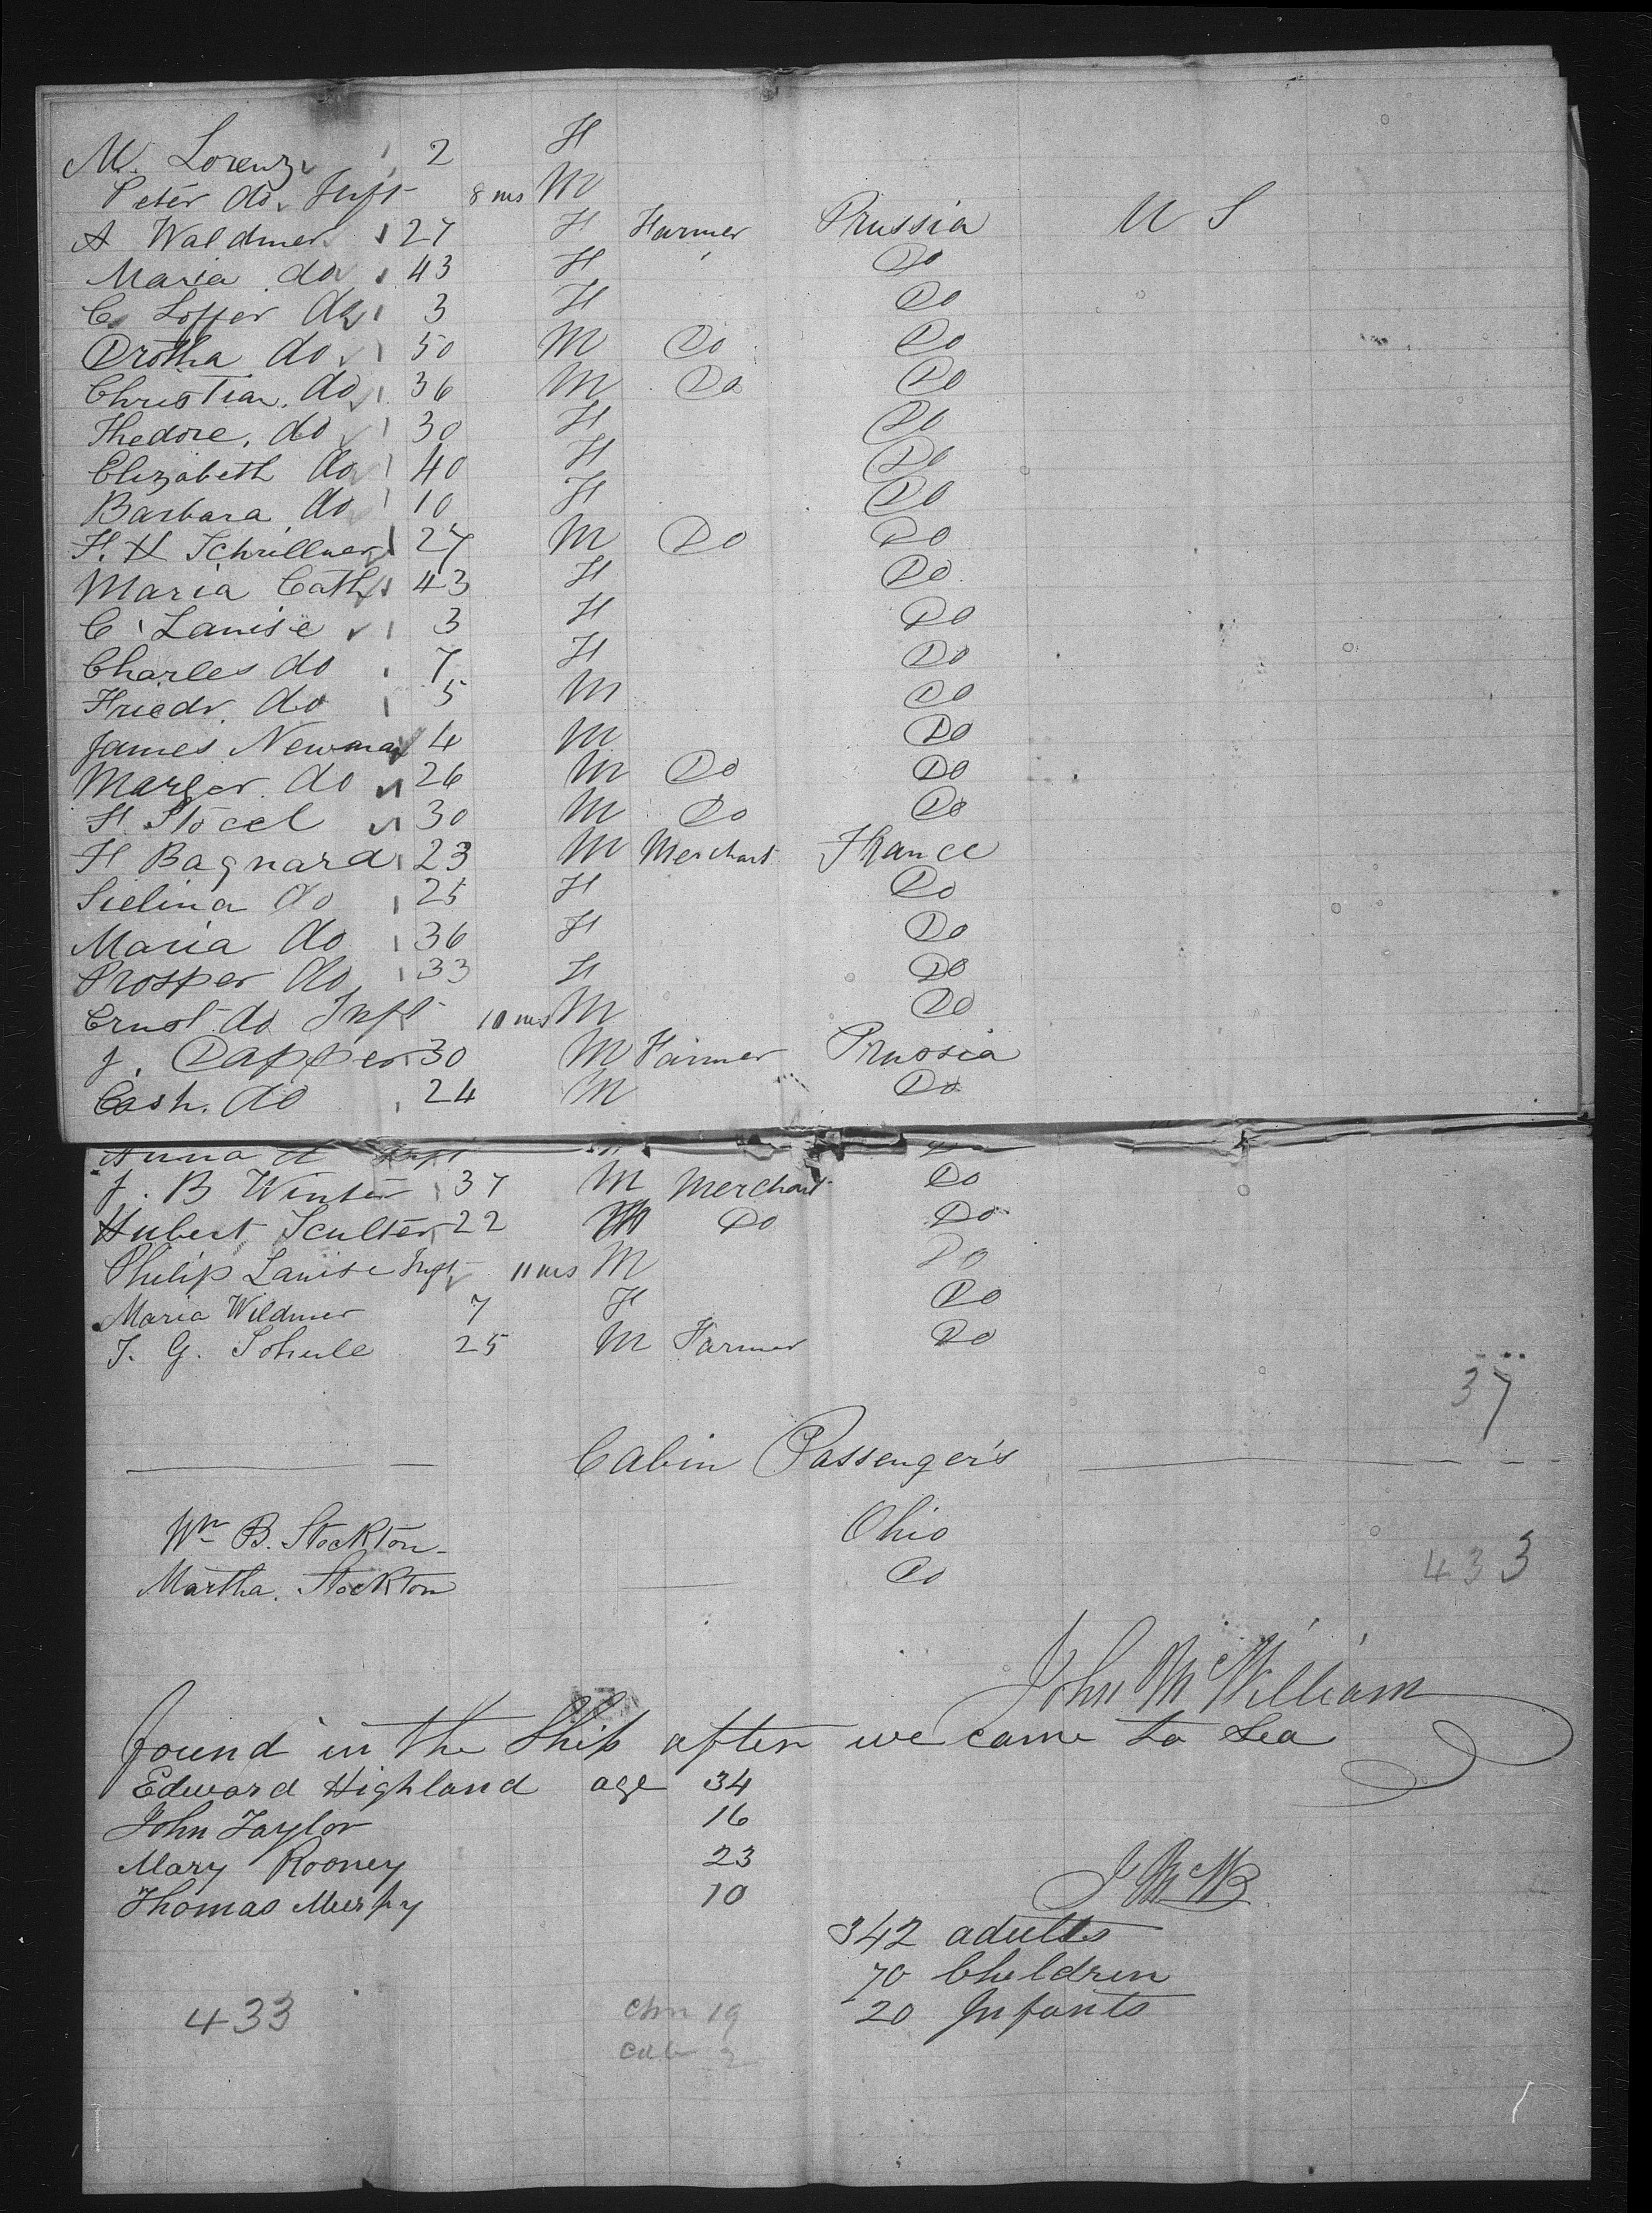 M. Lorenz 2 F
Peter do Inft 8 ms M
A Waldmer 27 F Farmer Prussia U S
Maria do 43 F Do
C. Loffer do 3 F Do
Drotha do 50 M Do Do
Christian. do 36 M Do Do
Thedore. do 30 F Do
Elizabeth do 40 F Do
Barbara do 10 F Do
F. H Schrillner 27 M Do Do
Maria Cath 43 F Do
C Lanise 3 F Do
Charles do 7 F Do
Friedr. do 5 M Do
James Newman 4 M Do
Marger. do 26 M Do Do
F. Stocel 30 M Do Do
F Bagnard 23 M Merchant France
Selina do 25 F Do
Maria do 36 F Do
Prosper do 33 F Do
Ernst do Inft 10 ms M Do
J. Dapper 30 M Farmer Prussia
Cash. do 24 M Do
Anna Inft
J. B Winter 37 M Merchant Do
Hubert Sculter 22 M Do Do
Philip Lanise Inft 11 ms M Do
Maria Wildmer 7 F Do
J. G. Schule 25 M Farmer Do
37
Cabin Passenger's
Wm B. Stockton Ohio
Martha. Stockton Do
433
John McWilliam
found in the Ship after we came to Sea
Edward Highland age 34
John Taylor 16
Mary Rooney 23
Thomas Murpy 10
J McW
342 adults
70 Children
20 Infants
433
Chn 19
Cab 2